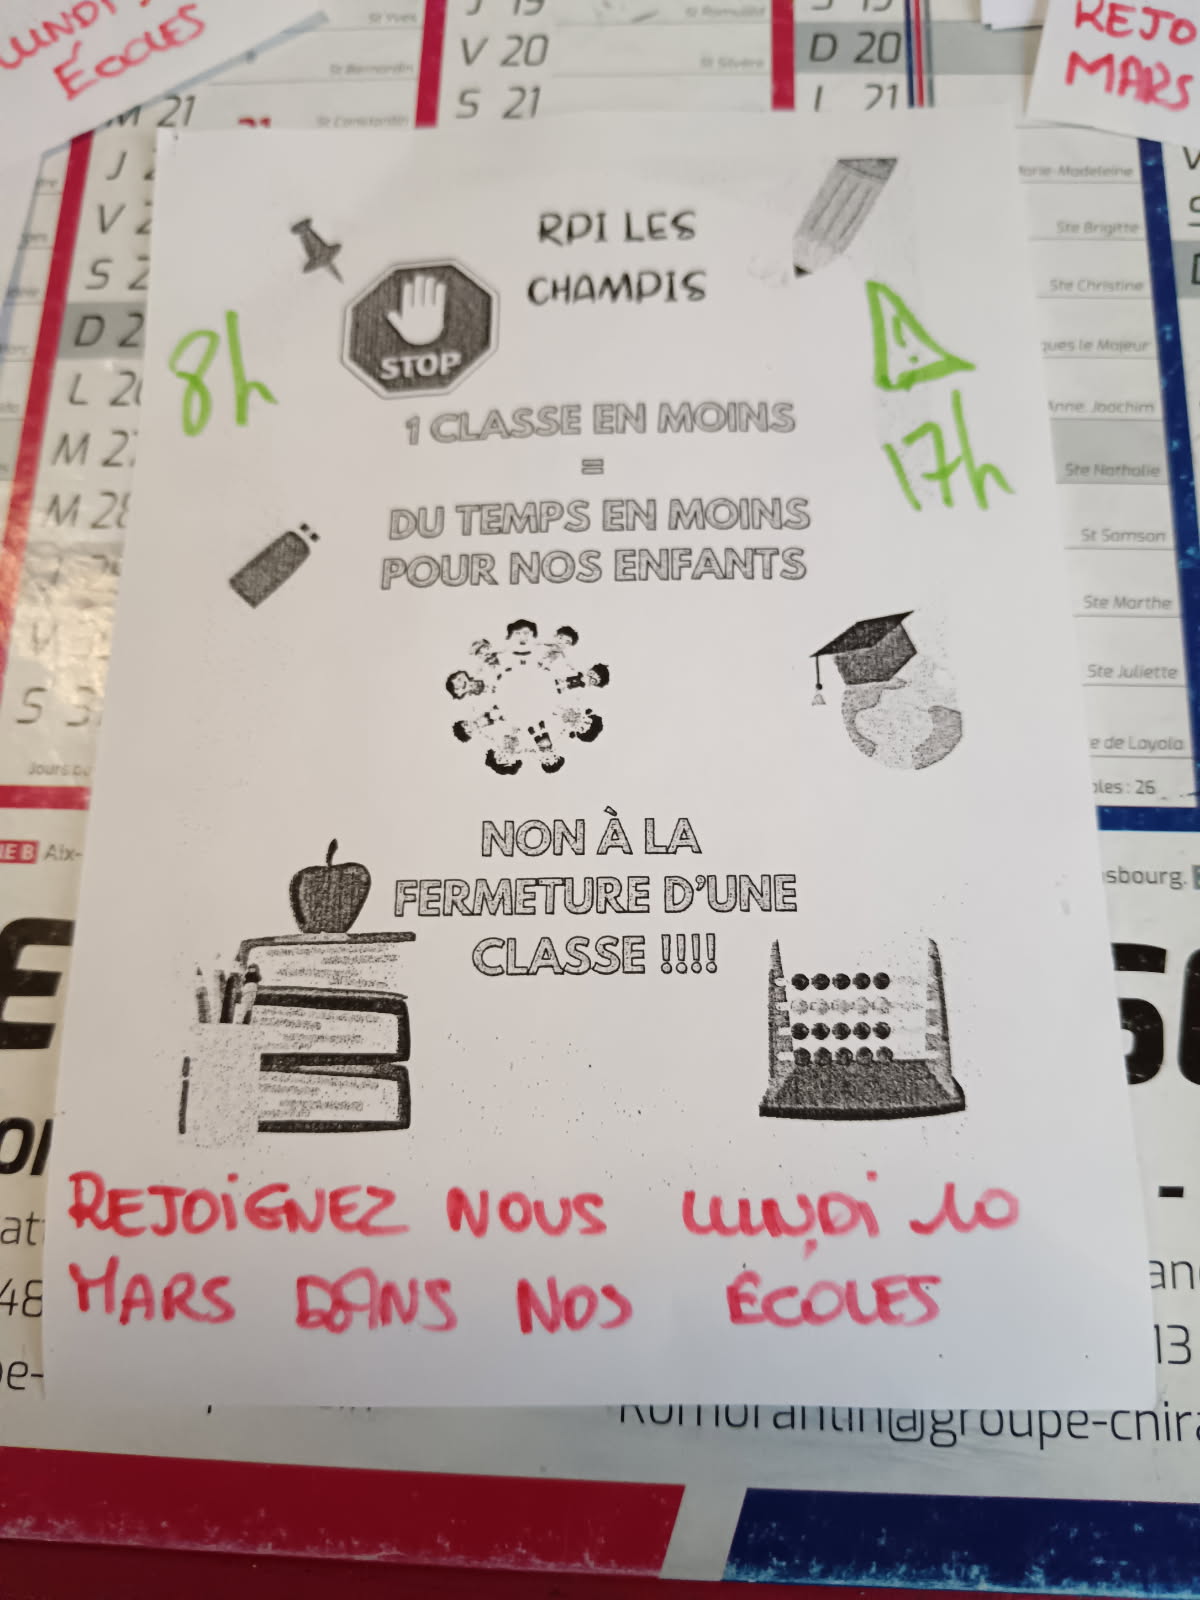 LUNDI
ÉCOLES
REJO
MARS
St Yves
J 19
V 20
S 21
St Bernardin
St Constantin
St Romuald
St Silvère
D 20
L 21
M 21
J
V
S
D
L
M
M 28
S
Marie-Madeleine
Ste Brigitte
Ste Christine
ques le Majeur
Anne, Joachim
Ste Nathalie
St Samson
Ste Marthe
Ste Juliette
e de Loyola
oles : 26
RPI LES
CHAMPIS
STOP
8h
17h
1 CLASSE EN MOINS
=
DU TEMPS EN MOINS
POUR NOS ENFANTS
NON À LA
FERMETURE D'UNE
CLASSE !!!!
REJOIGNEZ NOUS LUNDI 10
MARS DANS NOS ÉCOLES
NE B Aix-
sbourg.
48
13
Romorantin@groupe-cnira